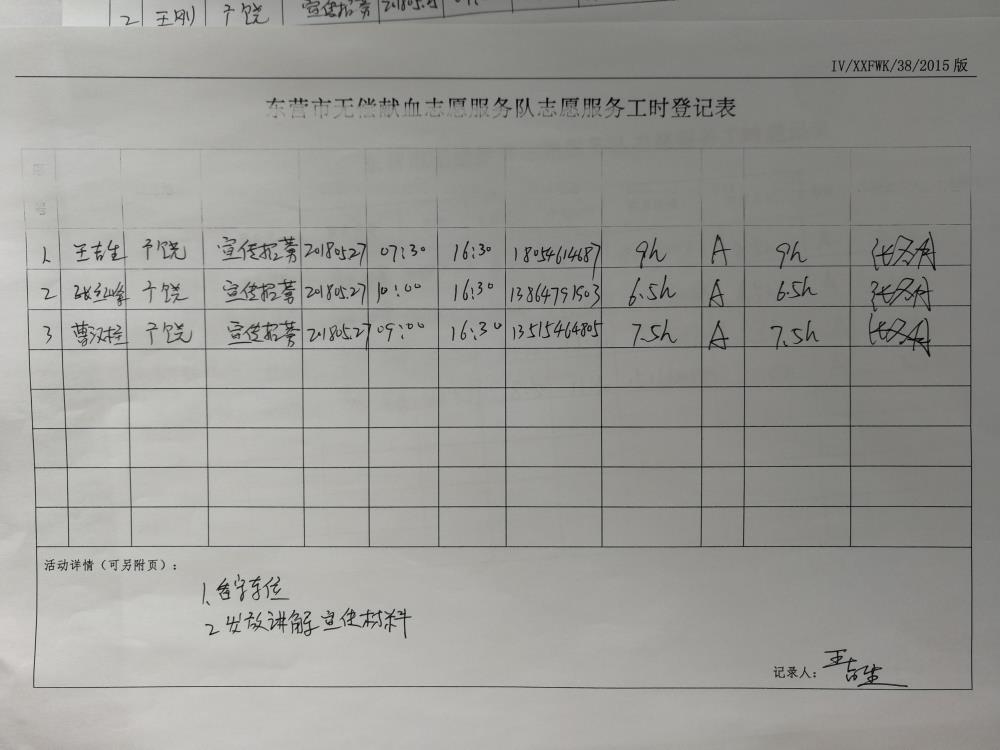 2 王刚 广饶 宣传招募 201805.27
IV/XXFWK/38/2015 版
东营市无偿献血志愿服务队志愿服务工时登记表
号
1 王吉生 广饶 宣传招募 20180527 07:30 16:30 18054614687 9h A 9h
2 广饶 宣传招募 20180527 10:00 16:30 13864791503 6.5h A 6.5h
3 曹汉桂 广饶 宣传招募 20180527 09:00 16:30 13515464805 7.5h A 7.5h
活动详情（可另附页）：
1、留守车位
2 发放讲解宣传材料
记录人： 王吉生